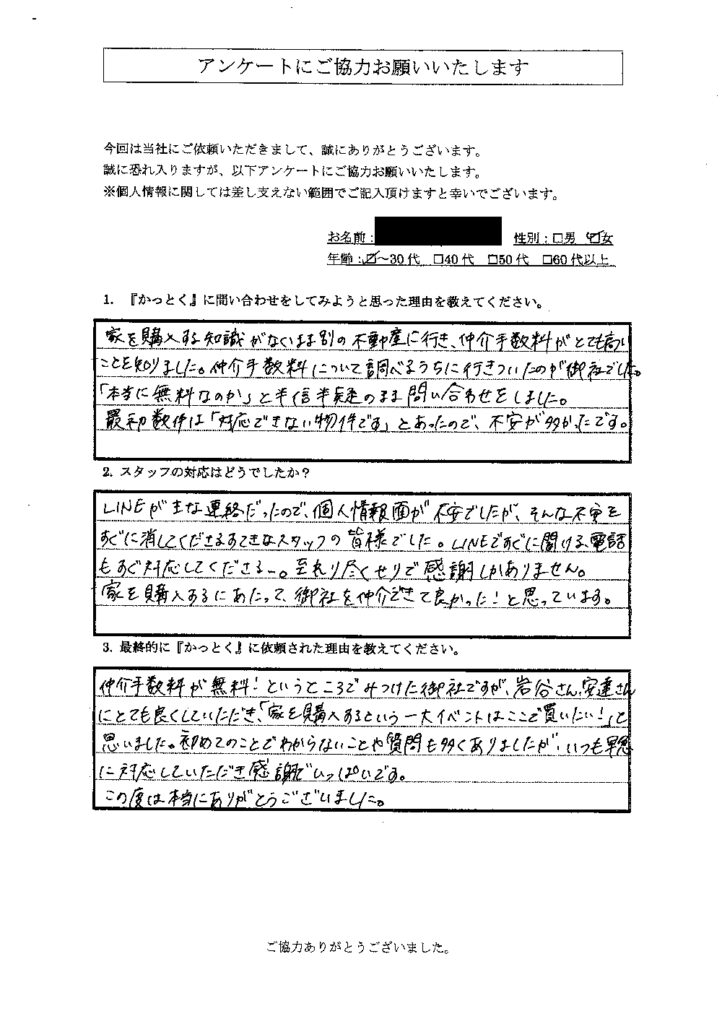 アンケートにご協力お願いいたします
今回は当社にご依頼いただきまして、誠にありがとうございます。
誠に恐れ入りますが、以下アンケートにご協力お願いいたします。
※個人情報に関しては差し支えない範囲でご記入頂けますと幸いでございます。
お名前： 性別：□男 ☑女
年齢：☑～30代 □40代 □50代 □60代以上
1. 『かっとく』に問い合わせをしてみようと思った理由を教えてください。
家を購入する知識がないまま別の不動産に行き、仲介手数料がとても高い
ことを知りました。仲介手数料について調べるうちに行きついたのが御社でした。
「本当に無料なのか」と半信半疑のまま問い合わせをしました。
最初数件は「対応できない物件です」とあったので、不安が多かったです。
2. スタッフの対応はどうでしたか？
LINEが主な連絡だったので、個人情報面が不安でしたが、そんな不安を
すぐに消してくださるすてきなスタッフの皆様でした。LINEですぐに聞ける、電話
もすぐ対応してくださる―。至れり尽くせりで感謝しかありません。
家を購入するにあたって、御社を仲介できて良かった！と思っています。
3. 最終的に『かっとく』に依頼された理由を教えてください。
仲介手数料が無料！というところでみつけた御社ですが、岩谷さん、安達さん
にとても良くしていただき、「家を購入するという一大イベントはここで買いたい！」と
思いました。初めてのことでわからないことや質問も多くありましたが、いつも早急
に対応していただき感謝でいっぱいです。
この度は本当にありがとうございました。
ご協力ありがとうございました。